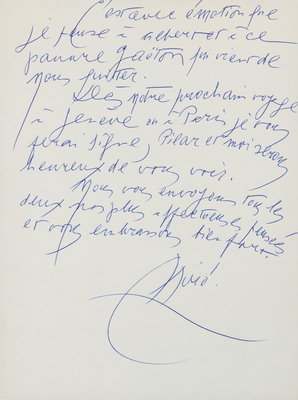 C'est avec émotion que
je pense à Hebert et à ce
pauvre Gaëton qui vient de
nous quitter.
Dès notre prochain voyage
à Genève ou à Paris je vous
ferai signe, Pilar et moi serons
heureux de vous voir.
Nous vous envoyons tous les
deux nos plus affectueuses pensées
et vous embrassons bien fort
Miró!